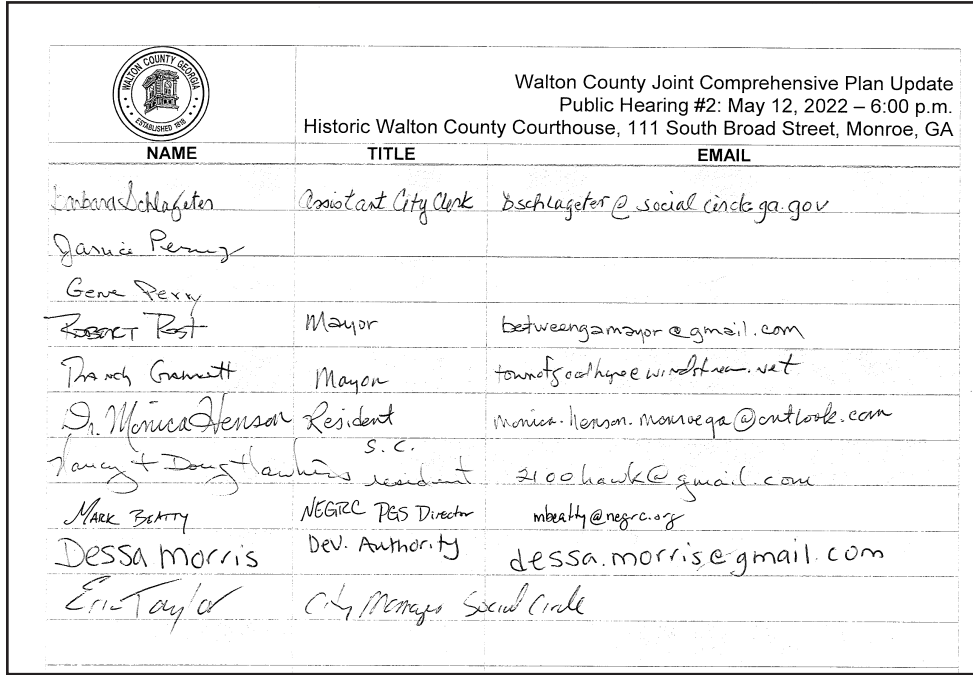 WALTON COUNTY GEORGIA
ESTABLISHED 1818
Walton County Joint Comprehensive Plan Update
Public Hearing #2: May 12, 2022 – 6:00 p.m.
Historic Walton County Courthouse, 111 South Broad Street, Monroe, GA
NAME TITLE EMAIL
Barbara Schlageter Assistant City Clerk bschlageter@socialcirclega.gov
Janice
Gene Perry
Robert Post Mayor betweengamayor@gmail.com
Mayor
Dr. Monica Henson Resident monica.henson.monroega@outlook.com
Nancy + Doug Hawkins S.C. resident 2100hawk@gmail.com
Mark Beatty NEGRC PGS Director mbeatty@negrc.org
Dessa Morris Dev. Authority dessa.morris@gmail.com
Eric Taylor City Manager Social Circle